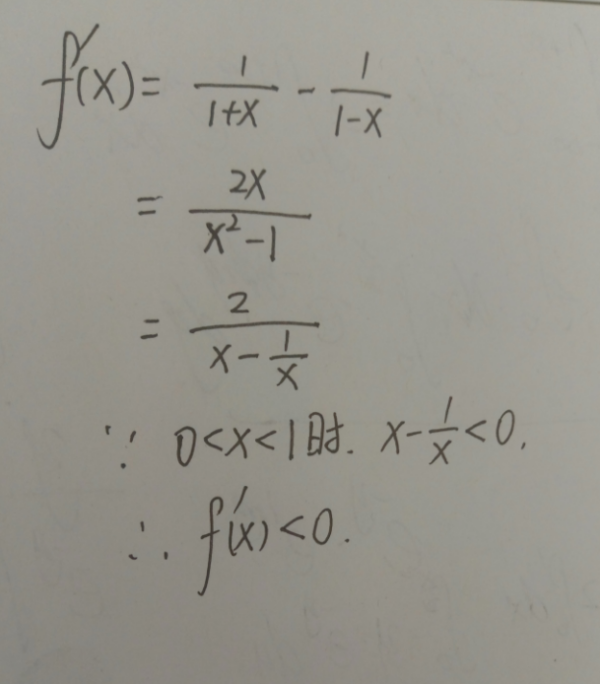 f'(x) = \frac{1}{1+x} - \frac{1}{1-x}
= \frac{2x}{x^2-1}
= \frac{2}{x-\frac{1}{x}}
∵ 0<x<1时. x-\frac{1}{x}<0,
∴ f'(x)<0.